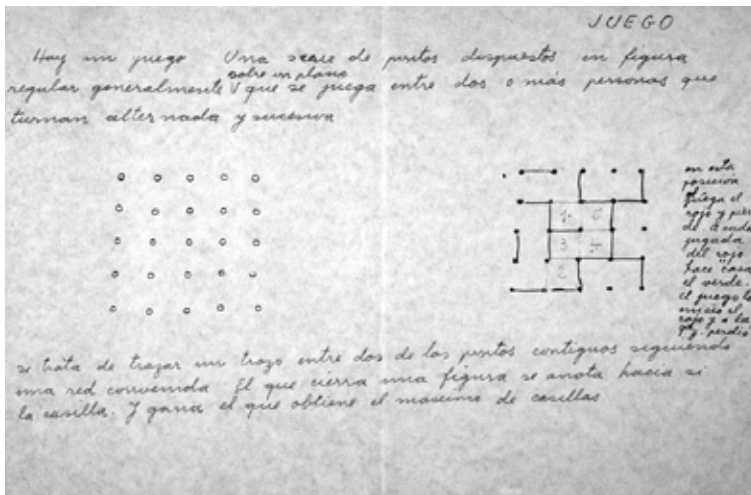 JUEGO
Hay un juego Una serie de puntos dispuestos en figura
sobre un plano
regular generalmente V que se juega entre dos o más personas que
turnan alternada y sucesiva
en esta
posición
juega el
rojo y pier
de a cada
jugada
del rojo
hace "casa"
el verde.
el juego lo
inició el
rojo y a la
perdió
1.
3
2
se trata de trazar un trozo entre dos de los puntos contiguos siguiendo
una red convenida El que cierra una figura se anota hacia si
la casilla. Y gana el que obtiene el maximo de casillas